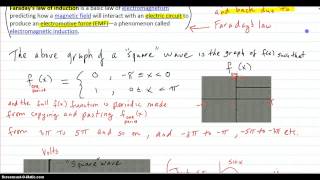 Faraday's law of induction is a basic law of electromagnetism
predicting how a magnetic field will interact with an electric circuit to
produce an electromotive force (EMF)—a phenomenon called
electromagnetic induction.
and back due to
Faraday's law
The above graph of a "square" wave is the graph of f(x) such that
f(x) = { 0, -π ≤ x < 0
one period
1, 0 ≤ x < π
f(x)
one period
and the full f(x) function is periodic made
from copying and pasting f(x)
one period
from 3π to 5π and so on, and -3π to -π, -5π to -3π etc.
Volts
"Square" wave
sin x
Screencast-O-Matic.com